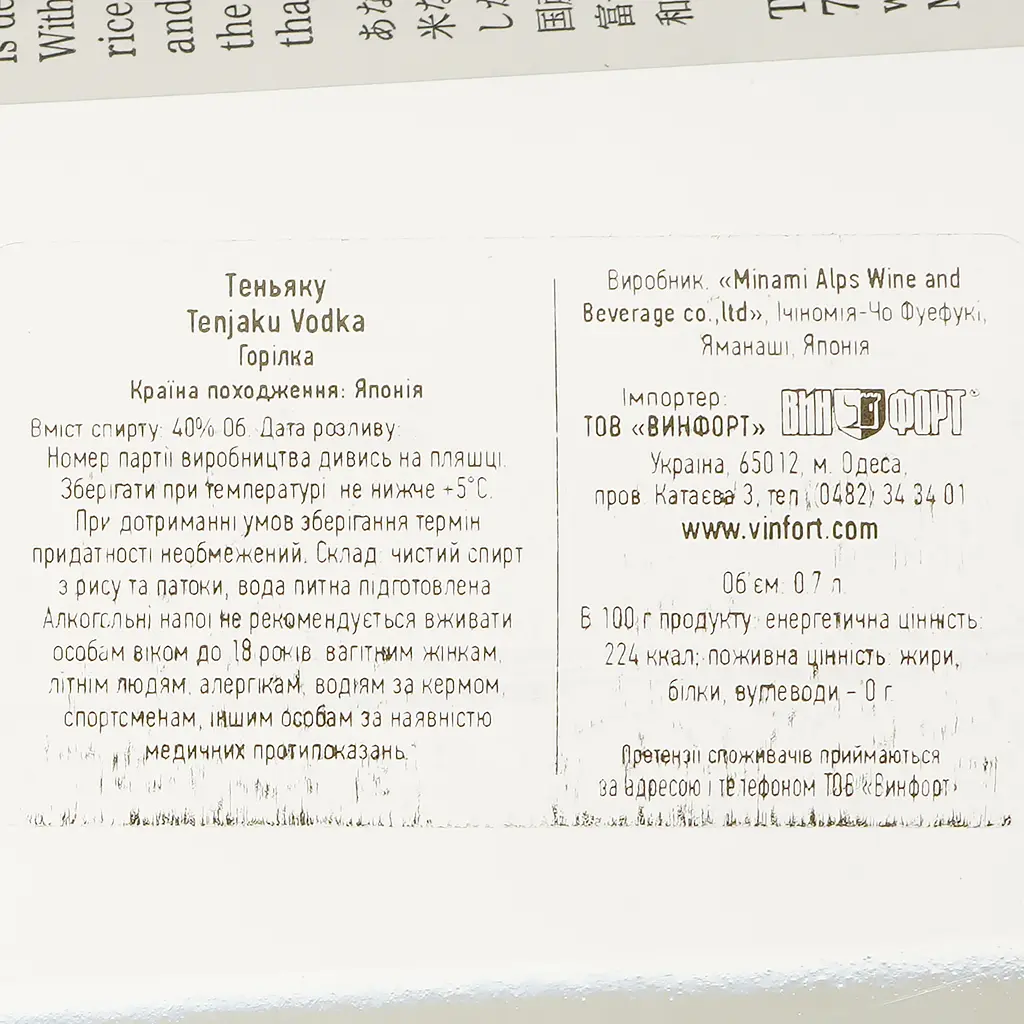 is de
With
rice
and
the
tha
あな
米な
した
国
富
和
T
7
w
Теньяку
Tenjaku Vodka
Горілка
Країна походження: Японія
Вміст спирту: 40% Об. Дата розливу:
Номер партії виробництва дивись на пляшці.
Зберігати при температурі не нижче +5°С.
При дотриманні умов зберігання термін
придатності необмежений. Склад: чистий спирт
з рису та патоки, вода питна підготовлена
Алкогольні напої не рекомендується вживати
особам віком до 18 років, вагітним жінкам,
літнім людям, алергікам, водіям за кермом,
спортсменам, іншим особам за наявністю
медичних протипоказань.
Виробник: «Minami Alps Wine and
Beverage co.,ltd», Ічіномія-Чо Фуефукі,
Яманаші, Японія
Імпортер:
ТОВ «ВИНФОРТ» ВИН ФОРТ
Україна, 65012, м. Одеса,
пров. Катаєва 3, тел.(0482) 34 34 01
www.vinfort.com
Об'єм: 0.7 л.
В 100 г продукту: енергетична цінність:
224 ккал; поживна цінність: жири,
білки, вуглеводи - 0 г.
Претензії споживачів приймаються
за адресою і телефоном ТОВ «Винфорт»